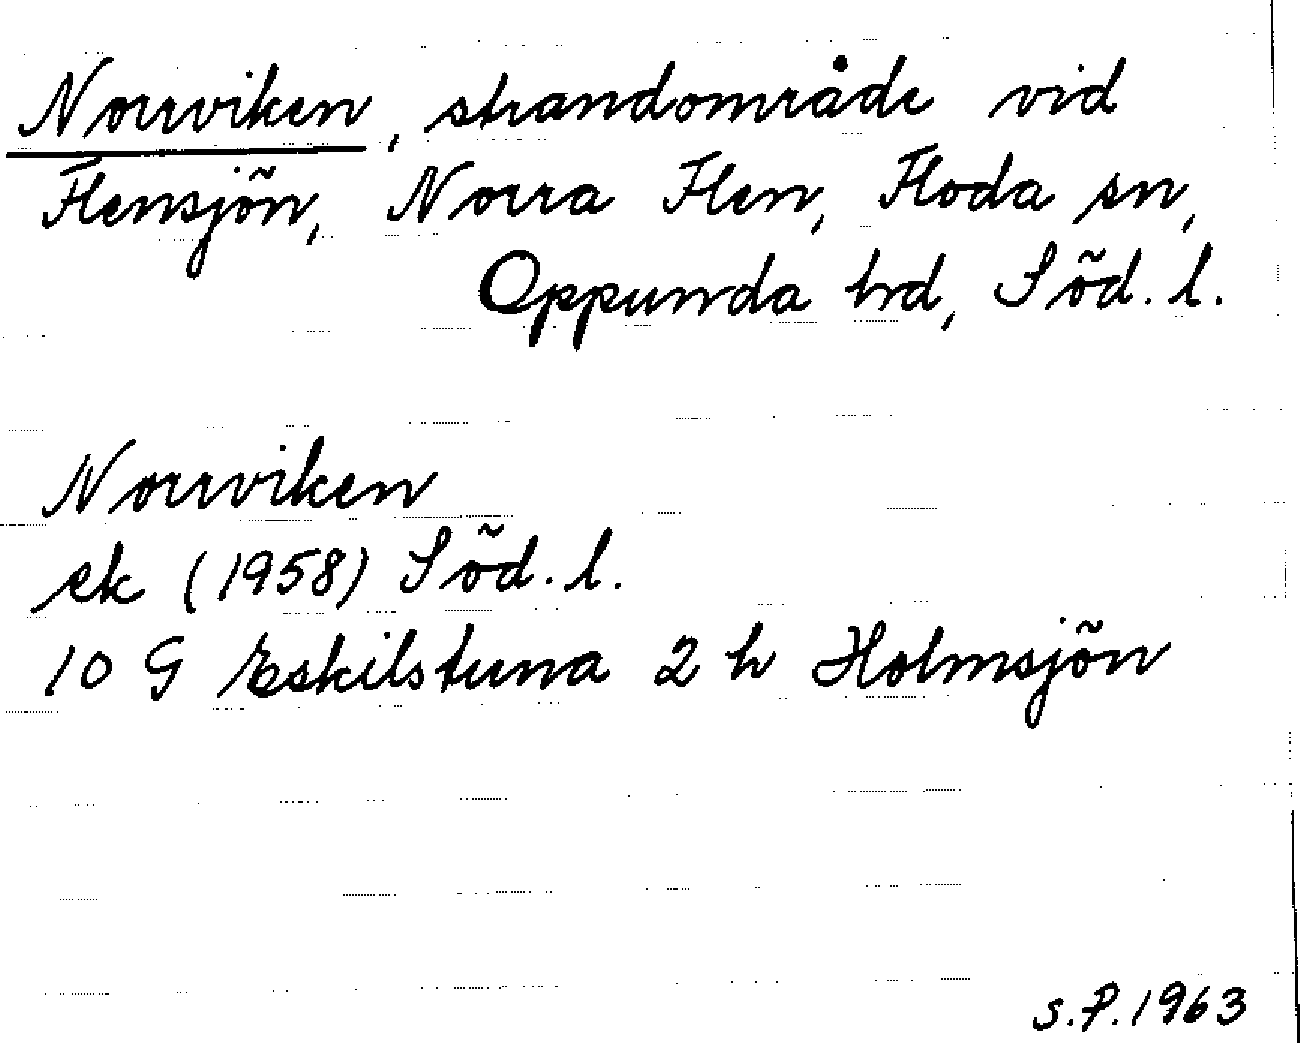 Norrviken, strandområde vid
Flensjön, Norra Flen, Floda sn,
Oppunda hrd, Söd. l.
Norrviken
ek (1958) Söd. l.
10 G Eskilstuna 2 h Holmsjön
S.P. 1963